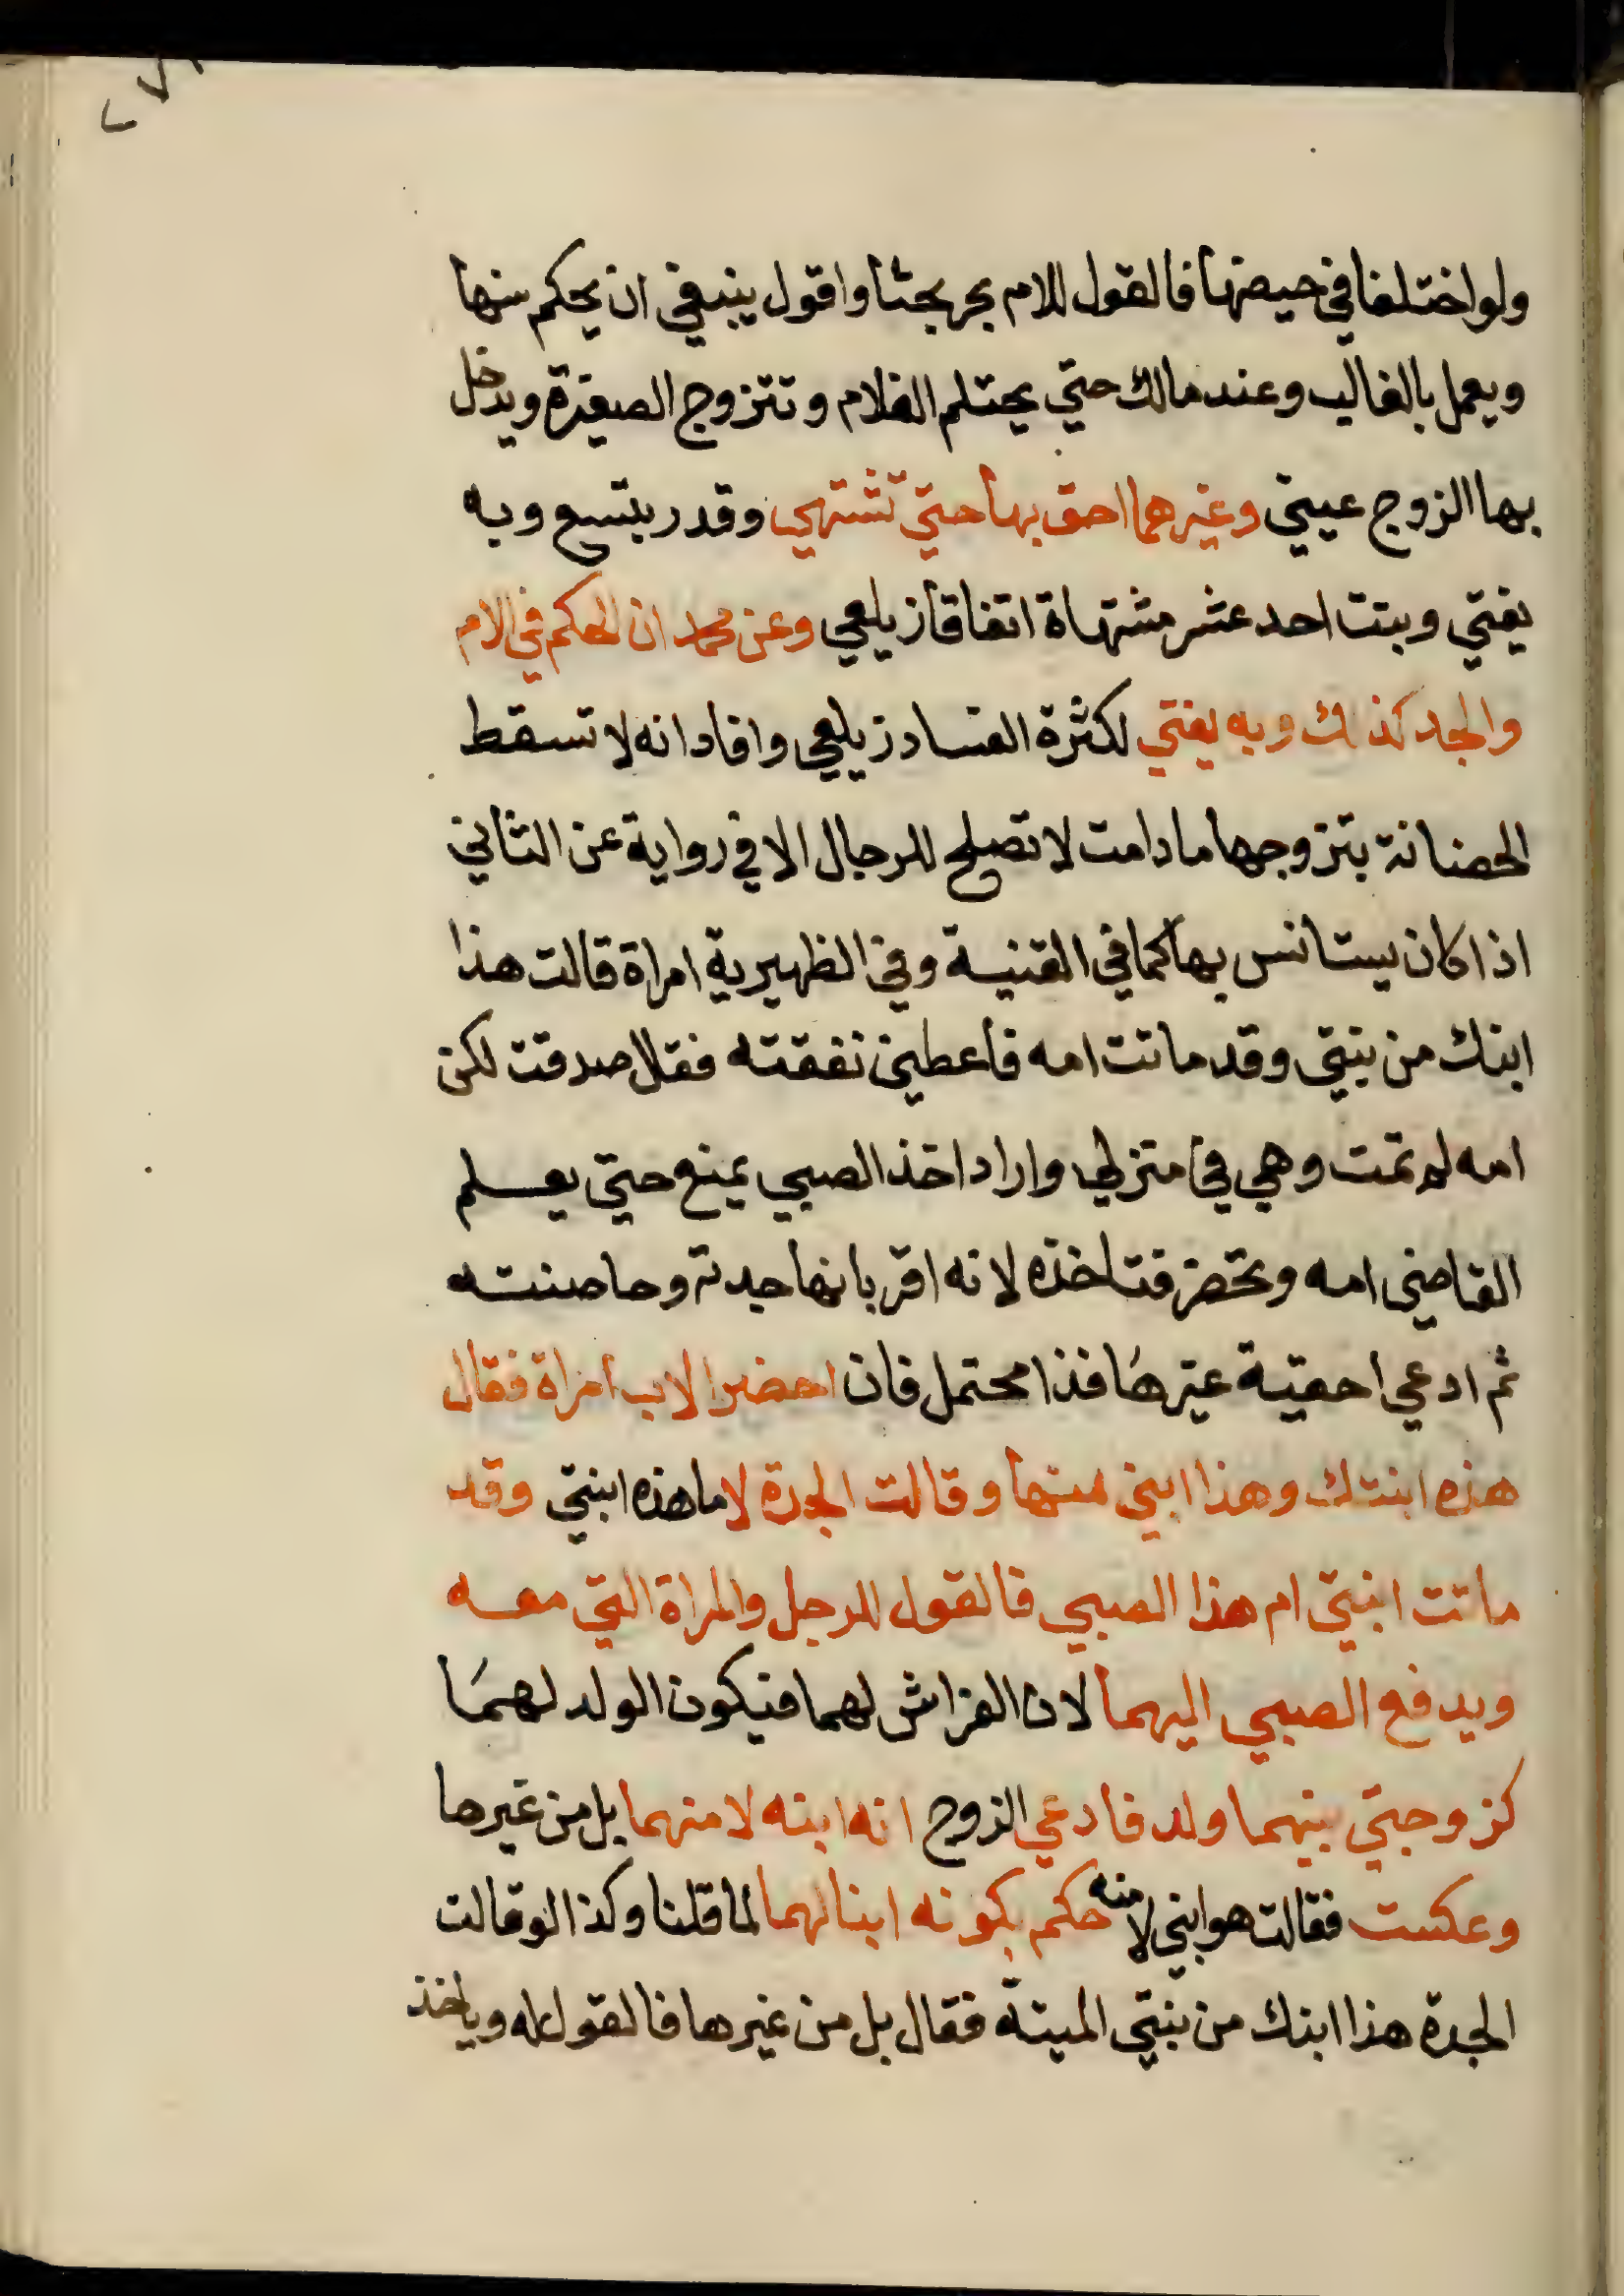 ولو اختلفا في حيضها فالقول للام بحر بحثا واقول ينبغي ان يحكم سنها
ويعمل بالغالب وعند مالك حتي يحتلم الغلام وتتزوج الصغيرة ويدخل
بها الزوج عيني وغيرهما احق بها حتي تشتهي وقدر بتسع وبه
يفتي وبنت احد عشر مشتهاة اتفاقا زيلعي وعن محمد ان الحكم في الام
والجد كذلك وبه يفتي لكثرة الفساد زيلعي وافاد انه لا تسقط
الحضانة بتزوجها ما دامت لا تصلح للرجال الا في رواية عن الثاني
اذا كان يستانس بها كما في القنية وفي الظهيرية امراة قالت هذا
ابنك من بنتي وقد ماتت امه فاعطيني نفقته فقال صدقت لكن
امه لم تمت وهي في منزلي واراد اخذ الصبي يمنع حتي يعلم
القاضي امه وتحضر فتاخذه لانه اقر بانها جدته وحاضنته
ثم ادعي احقية غيرها فذا محتمل فان احضر الاب امراة فقال
هذه ابنتك وهذا ابني منها وقالت الجدة لا ما هذه ابنتي وقد
ماتت ابنتي ام هذا الصبي فالقول للرجل والمراة التي معه
ويدفع الصبي اليهما لان الفراش لهما فيكون الولد لهما
كزوجتي بينهما ولد فادعي الزوج انه ابنه لا منهما بل من غيرها
وعكست فقالت هو ابني لا منه حكم بكونه ابنا لهما لما قلنا وكذا لو قالت
الجدة هذا ابنك من بنتي الميتة فقال بل من غيرها فالقول له وياخذ